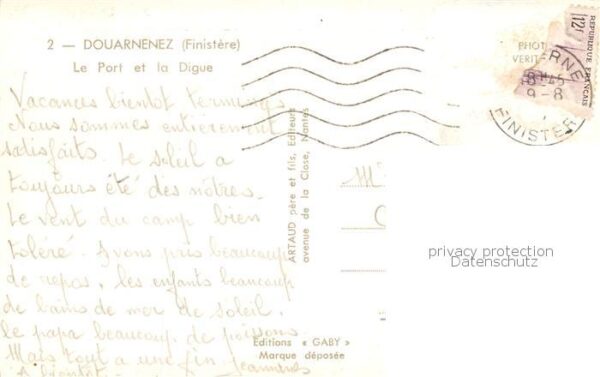 2 — DOUARNENEZ (Finistère)
Le Port et la Digue
Vacances bientôt terminées
Nous sommes entièrement
satisfaits. Le soleil a
toujours été des nôtres.
Le vent du camp bien
toléré. Avons pris beaucoup
de repos, les enfants beaucoup
de bains de mer de soleil.
le papa beaucoup de poissons.
Mais tout a une fin.
A bientôt.
ARTAUD père et fils, Editeurs
avenue de la Close, Nantes
Editions « GABY »
Marque déposée
PHOTO
VERIT
REPUBLIQUE FRANCAISE
12F
18H45
9-8
FINISTER
privacy protection
Datenschutz